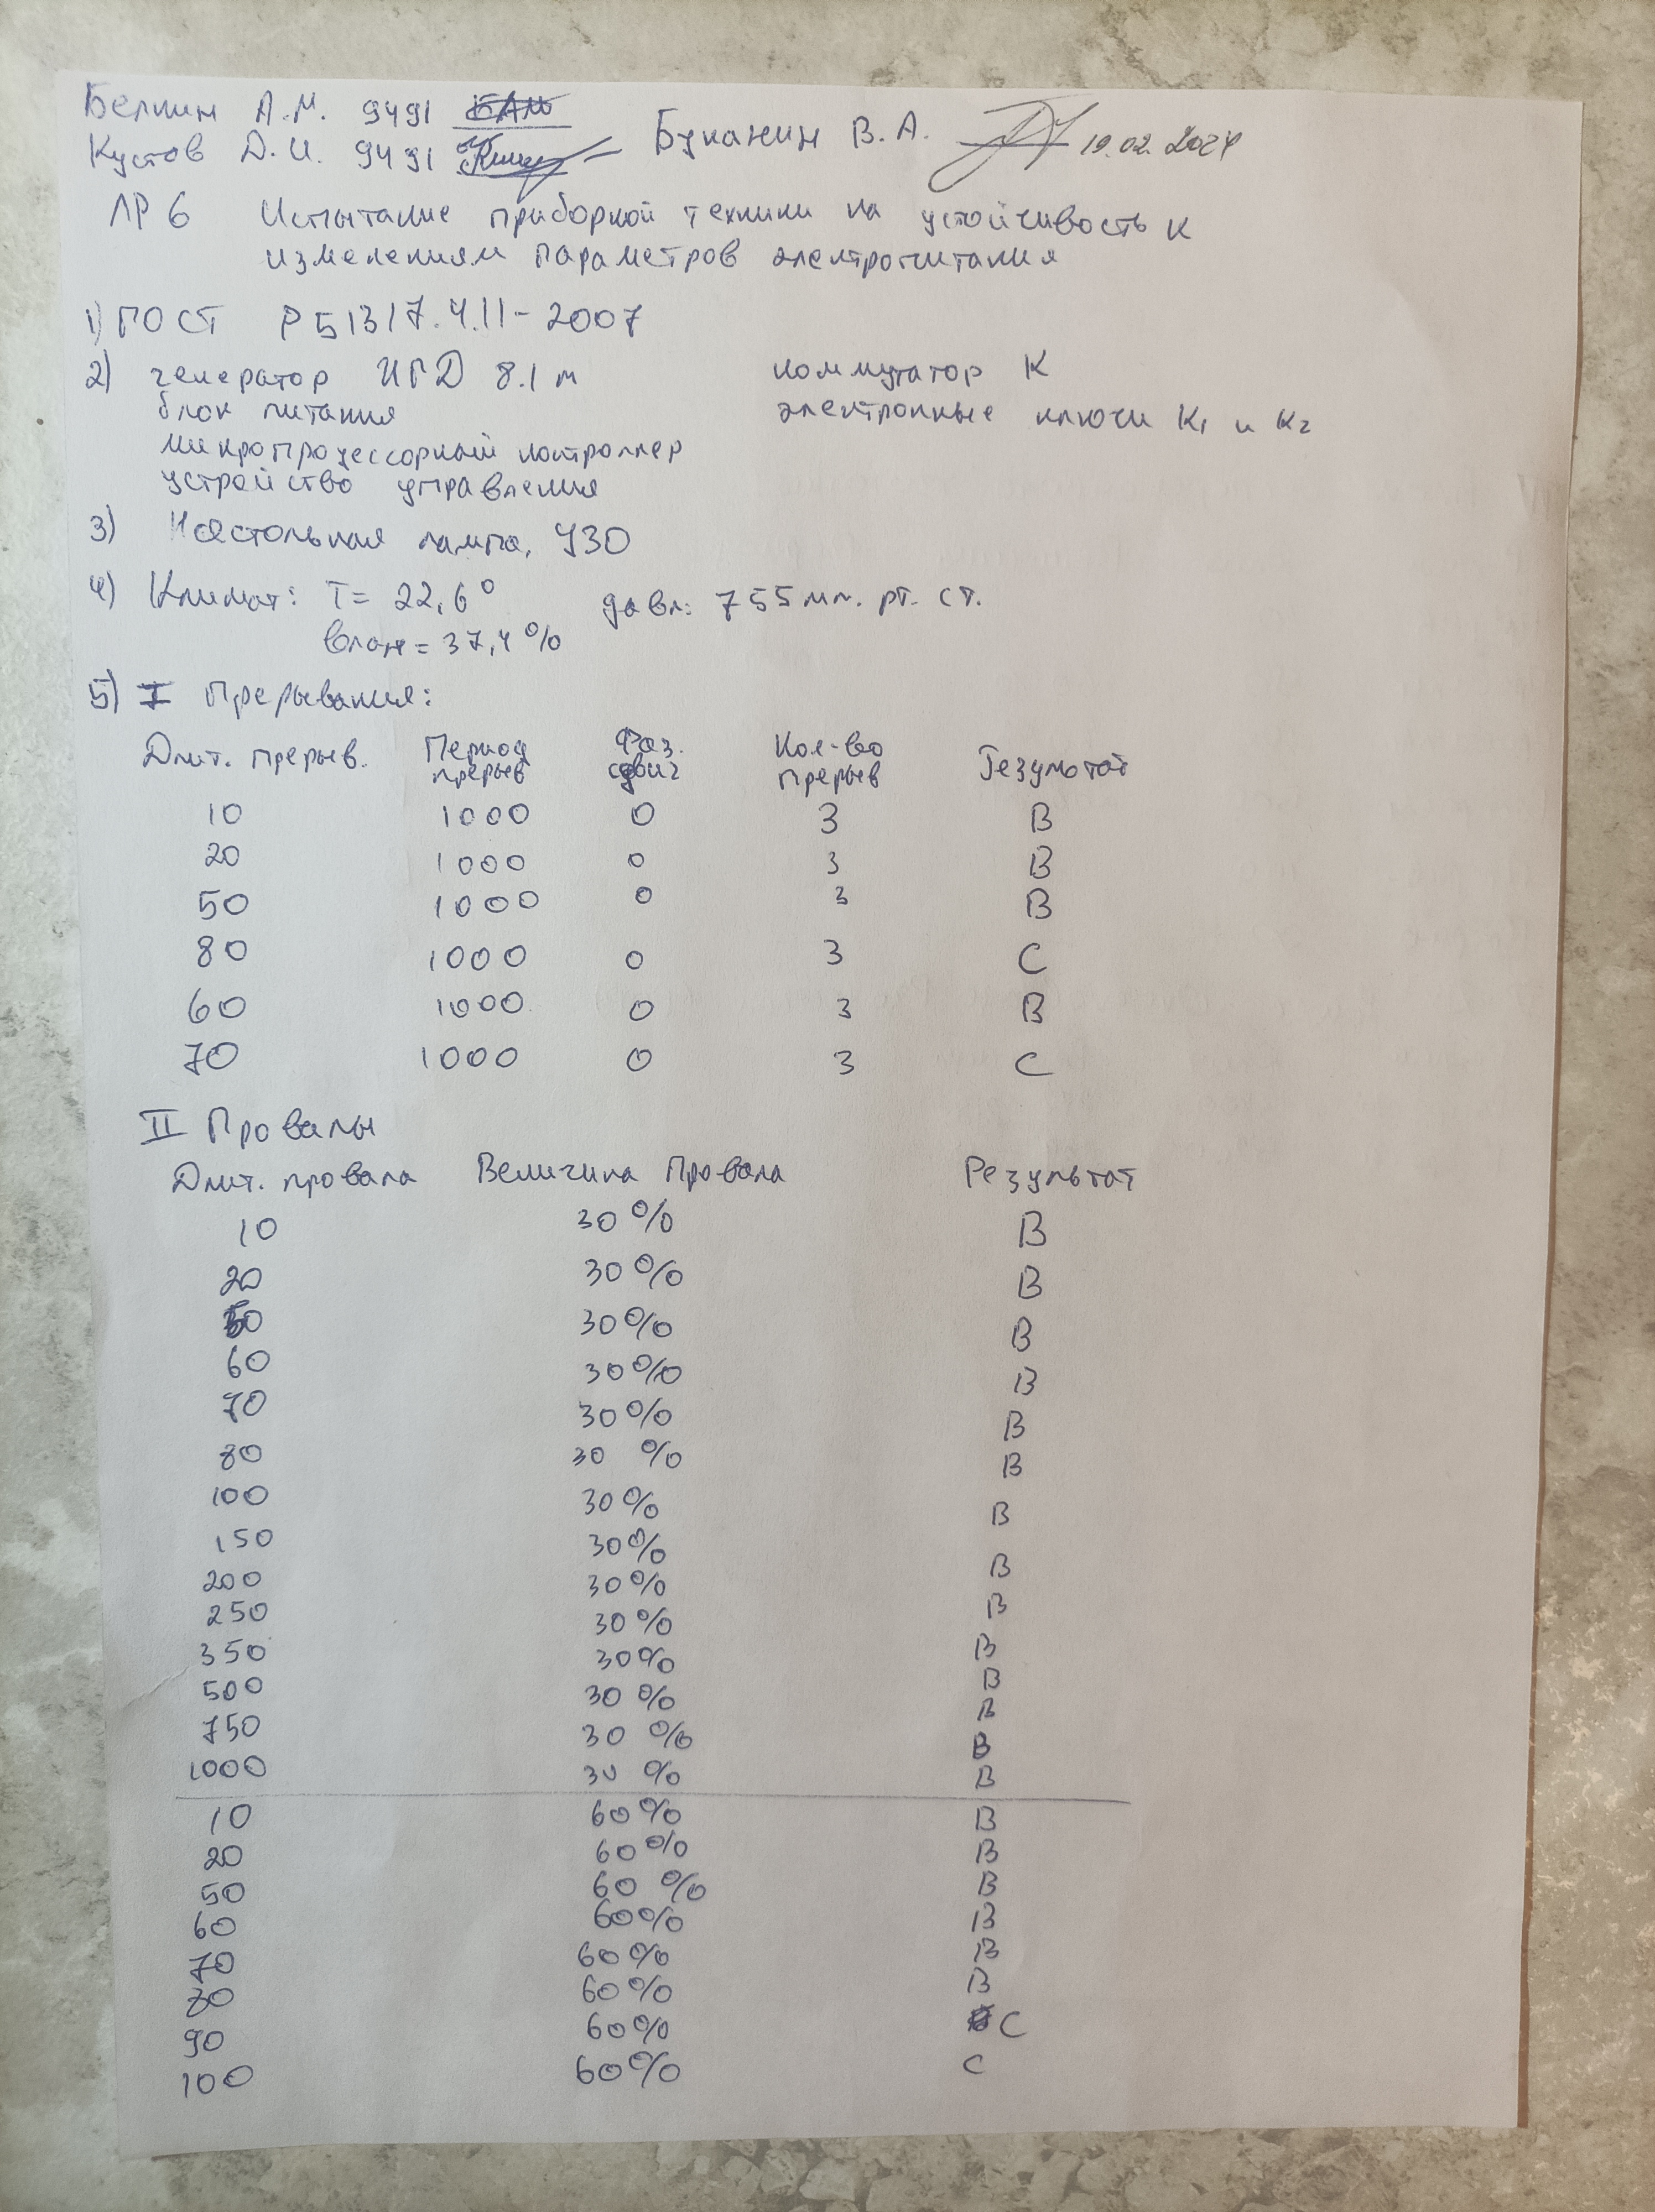 Белкин А.М. 9491 БАМ
Кустов Д.И. 9491
Буканин В.А. 19.02.2024
ЛР 6 Испытание приборной техники на устойчивость к
изменениям параметров электропитания
1) ГОСТ Р 51317.4.11-2007
2) генератор ИГД 8.1 м коммутатор К
блок питания электронные ключи К1 и К2
микропроцессорный контроллер
устройство управления
3) Настольная лампа, УЗО
4) Климат: Т= 22,6° давл: 755 мм. рт. ст.
влаж = 37,4 %
5) I Прерывания:
Длит. прерыв. Период прерыв Фаз. сдвиг Кол-во прерыв Результат
10 1000 0 3 В
20 1000 0 3 В
50 1000 0 3 В
80 1000 0 3 С
60 1000 0 3 В
70 1000 0 3 С
II Провалы
Длит. провала Величина Провала Результат
10 30 % В
20 30 % В
50 30 % В
60 30 % В
70 30 % В
80 30 % В
100 30 % В
150 30 % В
200 30 % В
250 30 % В
350 30 % В
500 30 % В
750 30 % В
1000 30 % В
10 60 % В
20 60 % В
50 60 % В
60 60 % В
70 60 % В
80 60 % В
90 60 % С
100 60 % С